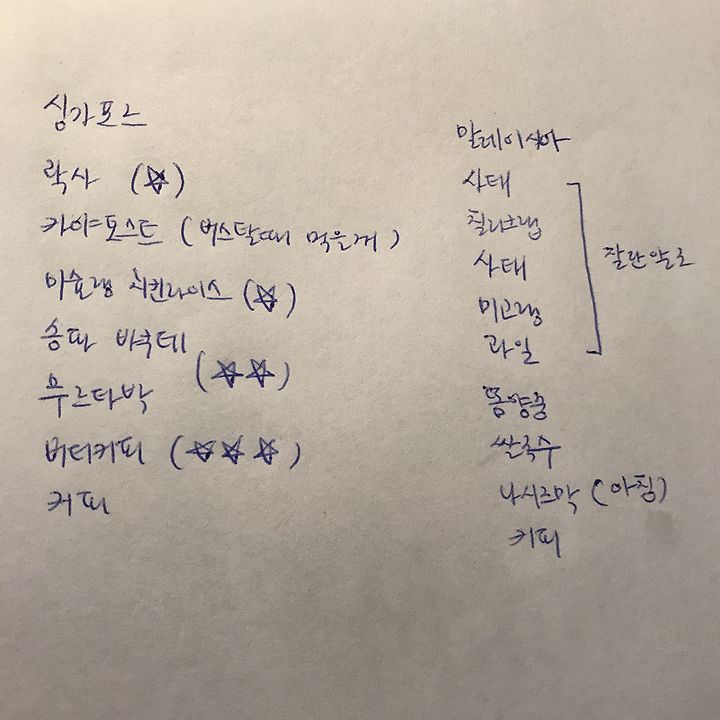 싱가포르
락사 (☆)
카야토스트 (버스탈때 먹을게)
마숲랭 치킨라이스 (☆)
송파 바쿠테
(☆☆)
무르타박
버터커피 (☆☆☆)
커피
말레이시아
사태
칠리크랩
사태
미고랭
과일
잘란알로
똠양꿍
쌀국수
나시르막 (아침)
커피